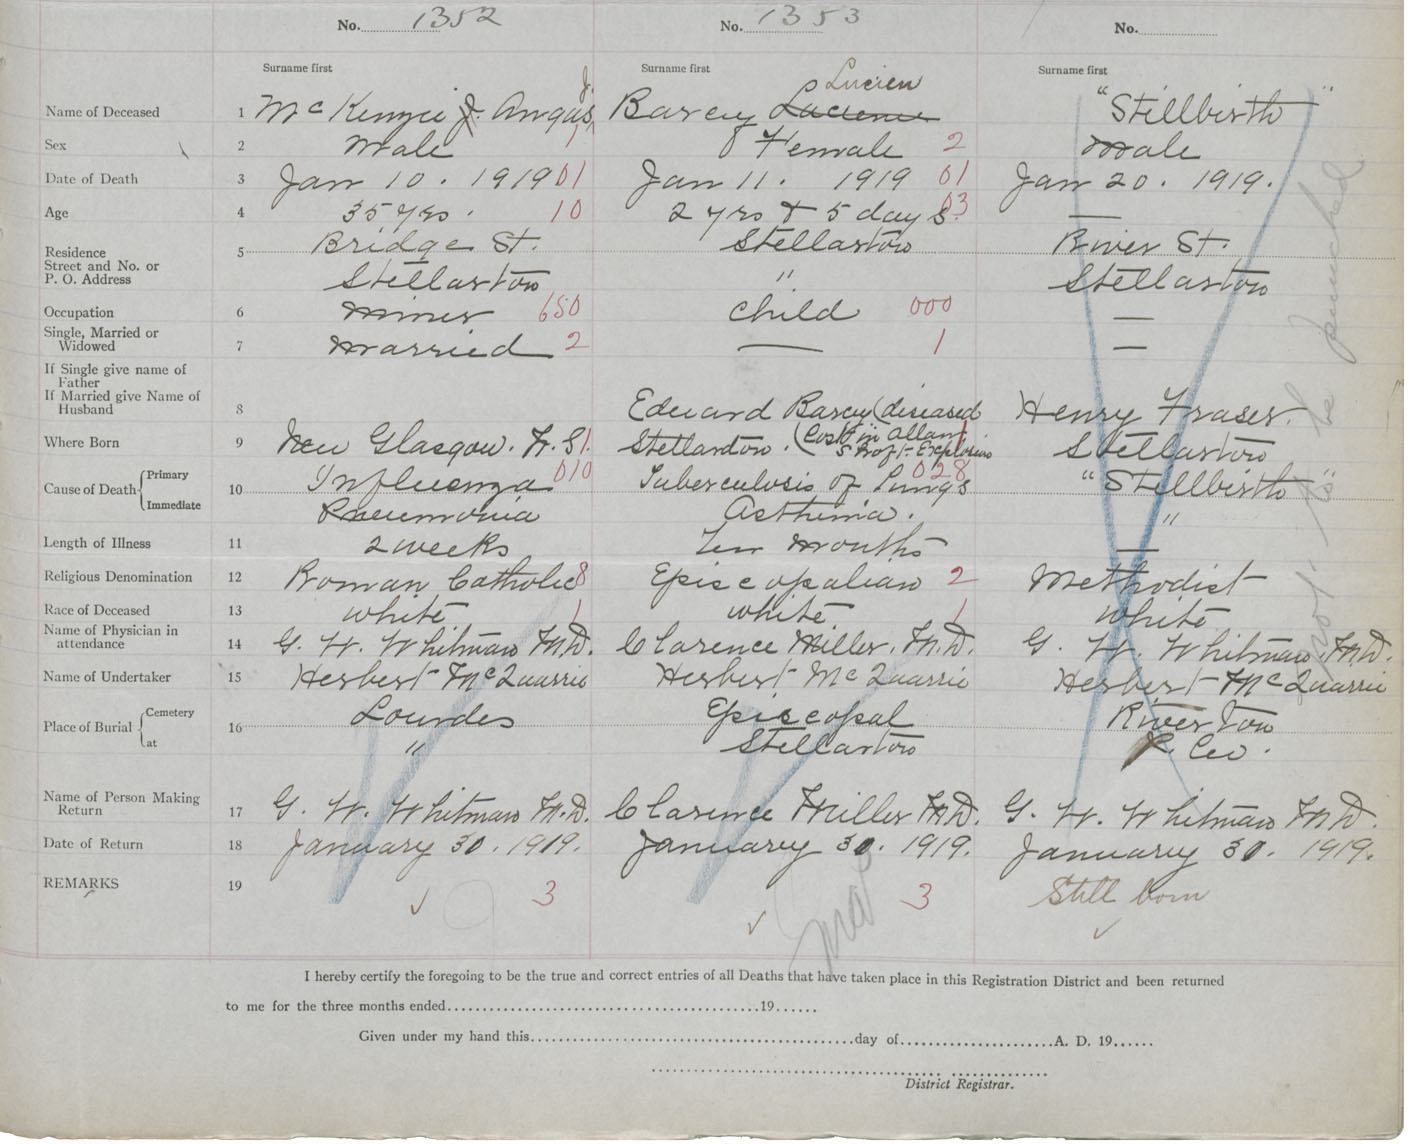 No. 1352 No. 1353 No.
Surname first Surname first Surname first
Lucien
J.
Name of Deceased 1 McKenzie J. Angus Barcy Lucienne "Stillbirth"
Sex 2 Male 1 Female 2 Male
Date of Death 3 Jan 10. 1919 01 Jan 11. 1919 01 Jan 20. 1919.
Age 4 35 yrs. 10 2 yrs & 5 days. 03 —
Residence 5 Bridge St. Stellarton River St.
Street and No. or
P. O. Address Stellarton " Stellarton
Occupation 6 Miner 650 child 000 —
Single, Married or
Widowed 7 Married 2 — 1 —
If Single give name of
Father
If Married give Name of
Husband 8 Edward Barcy (diseased Henry Fraser.
Where Born 9 New Glasgow. N. S. 1 Stellarton. (Lost in Allan 1 Stellarton
Shaft-Explosion
Cause of Death Primary 10 Influenza 010 Tuberculosis of Lungs 028 "Stillbirth"
Immediate Pneumonia Asthma. "
Length of Illness 11 2 weeks Ten months —
Religious Denomination 12 Roman Catholic 8 Episcopalian 2 Methodist
Race of Deceased 13 white 1 white 1 white
Name of Physician in
attendance 14 G. W. Whitman M.D. Clarence Miller. M.D. G. W. Whitman. M.D.
Name of Undertaker 15 Herbert McQuarrie Herbert McQuarrie Herbert McQuarrie
Place of Burial Cemetery 16 Lourdes Episcopal Riverton
at " Stellarton P. Co.
Name of Person Making
Return 17 G. W. Whitman M.D. Clarence Miller M.D. G. W. Whitman M.D.
Date of Return 18 January 30. 1919. January 30. 1919. January 30. 1919.
REMARKS 19 3 3 Still born
not to be punched
I hereby certify the foregoing to be the true and correct entries of all Deaths that have taken place in this Registration District and been returned
to me for the three months ended 19
Given under my hand this day of A. D. 19
District Registrar.